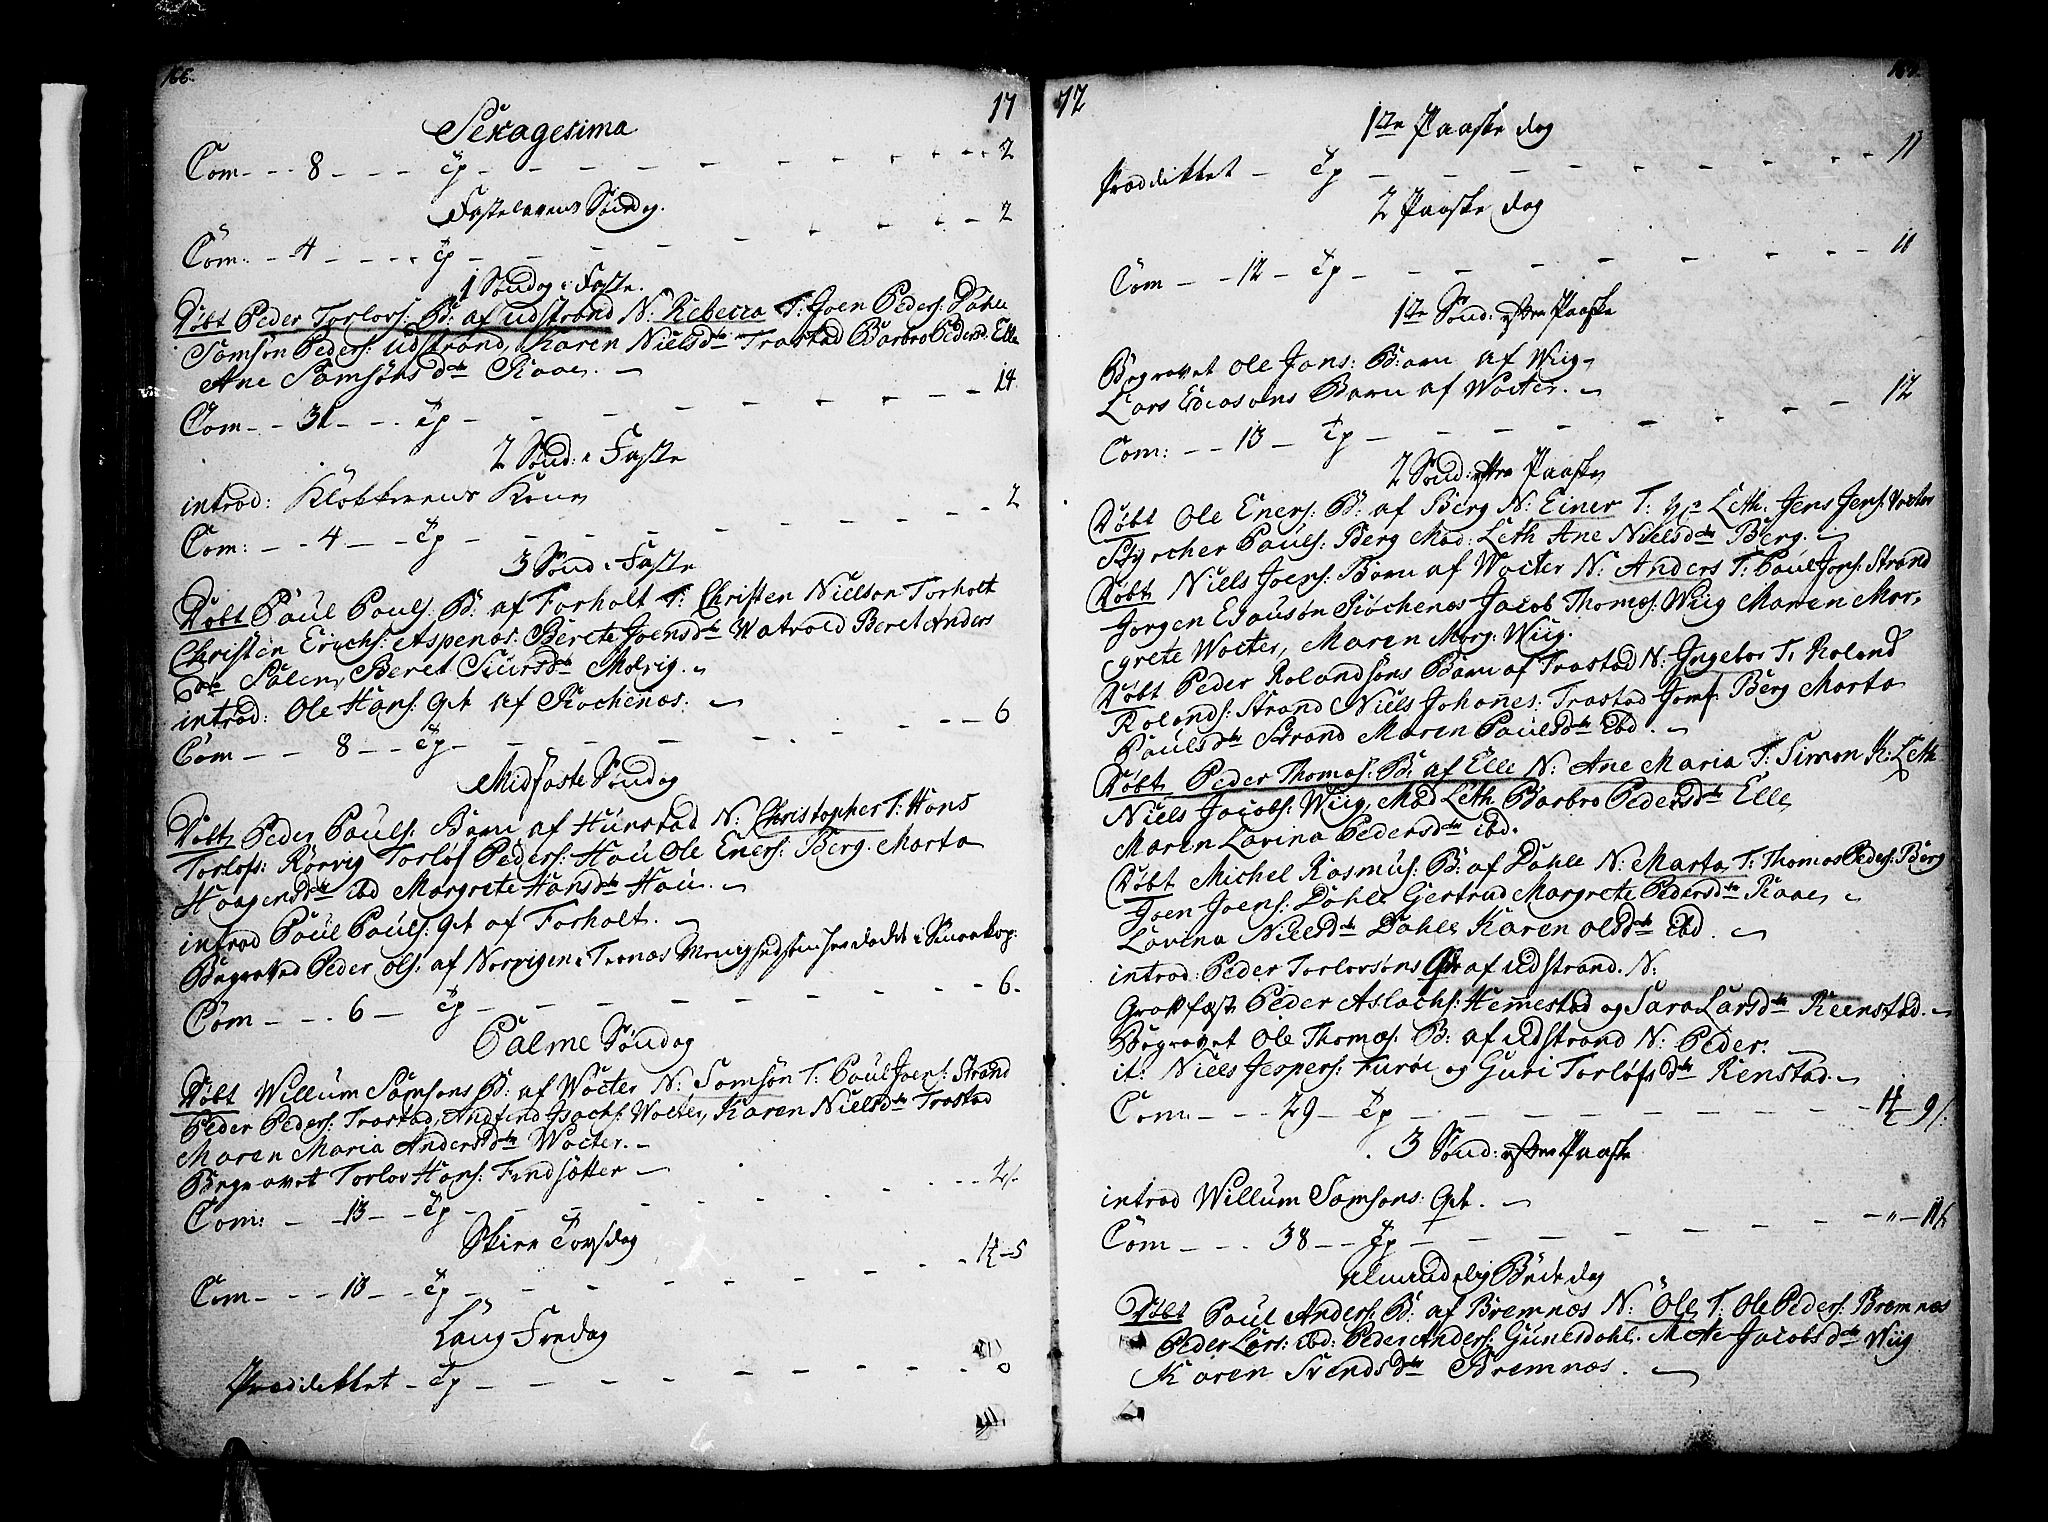 166.
17
Sexagesima
Com - - - 8 - - - - Tp - - - - - 2
Fastelavens Søndag.
Com: - - 4 - - - - Tp - - - - - 2
1 Søndag i Faste.
Døbt Peder Torlovs: B: af Udstrand N: Rebecca T: Joen Peders: Dahle
Samson Peders: Udstrand, Karen Nielsdtr Trastad Barbro Pedersd. Elle
Ane Samsønsdtr Raae. -
Com - - 31 - - - Tp - - - - - 14
2 Sønd: i Faste
introd: Klokkerens Kone
Com: - - 4 - - Tp - - - - - 2
3 Sønd i Faste
Døbt Paul Pouls: B: af Forholt T: Christen Nielson Forholt
Christen Erichs: Aspenæs: Berete Joensdtr Watvold Beret Anders
dtr Salen, Beret Siursdtr Molvig. -
introd: Ole Hans: Qv: af Rochenæs: -
Com - - - 8 - - Tp - - - - - 6
Midfaste Søndag
Døbt Peder Pouls: Barn af Hunstad N: Christopher T: Hans
Torlofs: Rørvig Torlof Peders: Hau Ole Eners: Berg. Marta
Haagensdtr ibd Margrete Hansdtr Hau. -
introd Paul Pouls: Qv: af Forholt. -
Begraved Peder Ols: af Norvigen i Trenæs Menighed som
Com - - - 6 - Tp - - - - - 6.
Palme Søndag
Døbt Willum Samsons B: af Wocter N: Samson T: Paul Joens: Strand
Peder Peders: Trastad, Andfind Isachs: Wocter, Karen Nielsdtr Trastad
Maren Maria Andersdtr Wocter. -
Begravet Torlov Hans: Findsætter -
Com: - - 13 - - Tp - - - - -
Skire Torsdag
Com - - - 13 - - Tp - - - - - 5
Lang Fredag
Prædikket - Tp - - - - - 0
72
1ste Paaske dag
Prædikket - Tp - - - - - 11
2 Paaske dag
Com - - 12 - Tp - - - - - 11
1ste Sønd: efter Paaske
Begravet Ole Jons: Barn af Wiig
Lars Ediasons Barn af Wocter. -
Com: - - 13 - Tp - - - - - 12
2 Sønd: efter Paaske
Døbt Ole Eners: B: af Berg N: Einer T: Hr Leth. Jens Jens: Wocter
Styrcher Pauls: Berg Mad: Leth Ane Nielsdtr Berg. -
Døbt Niels Joens: Barn af Wocter N: Anders T: Paul Jons: Strand
Jorgen Esausøn Rochenæs Jacob Thomæs: Wiig Maren Mar,
grete Wocter, Maren Marg: Wiig.
Døbt Peder Rolandsøns Barn af Trastad N: Ingebor T: Roland
Rolands: Strand Niels Johannes: Trastad Jomf: Berg Marta
Paulsdtr Strand Maren Paulsdtr ibd. -
Døbt Peder Thomas: B: af Elle N: Ane Maria T: Simon K: Leth
Niels Jacobs: Wiig, Mad Leth Barbro Pedersdtr Elle
Maren Lavina Pedersdtr ibd.
Døbt Michel Rasmus: B: af Dahle N: Marta T: Thomas Peders: Berg
Joen Joens: Dahle Gertrud Margrete Pedersdtr Raae -
Lavina Nielsdtr Dahle Karen Olsdtr ibd. -
introd: Peder Torlovsøns Qv af Udstrand. N:
Graffæst Peder Aslachs: Hemestad og Sara Larsdtr Reenstad. -
Begravet Ole Thomæs: B: af Udstrand N: Peder.
it: Niels Jespers: Furøe og Guri Torlofsdtr Renstad. -
Com: - - - 29 - Tp - - - - - 9
3 Sønd: efter Paaske
introd Willum Samsons: Qv. -
Com - - - 38 - - Tp - - - - -
Almindelig Bededag
Døbt Paul Anders: B: af Bremnæs N: Ole T: Ole Peders: Bremnæs
Peder Lars: ibd: Peder Anders: Gunesdahl. Mette Jacobsdtr Wiig
Karen Svendsdtr Bremnæs. -